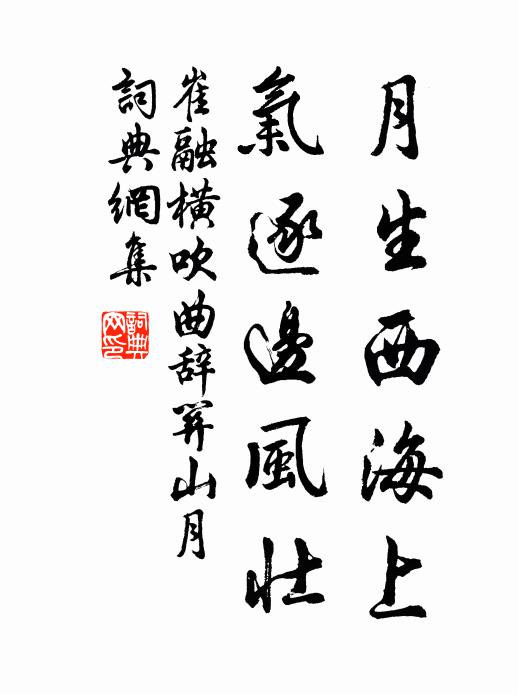 月生西海上
氣逐邊風壯
崔融橫吹曲辞関山月
詞典網集
詞典网印